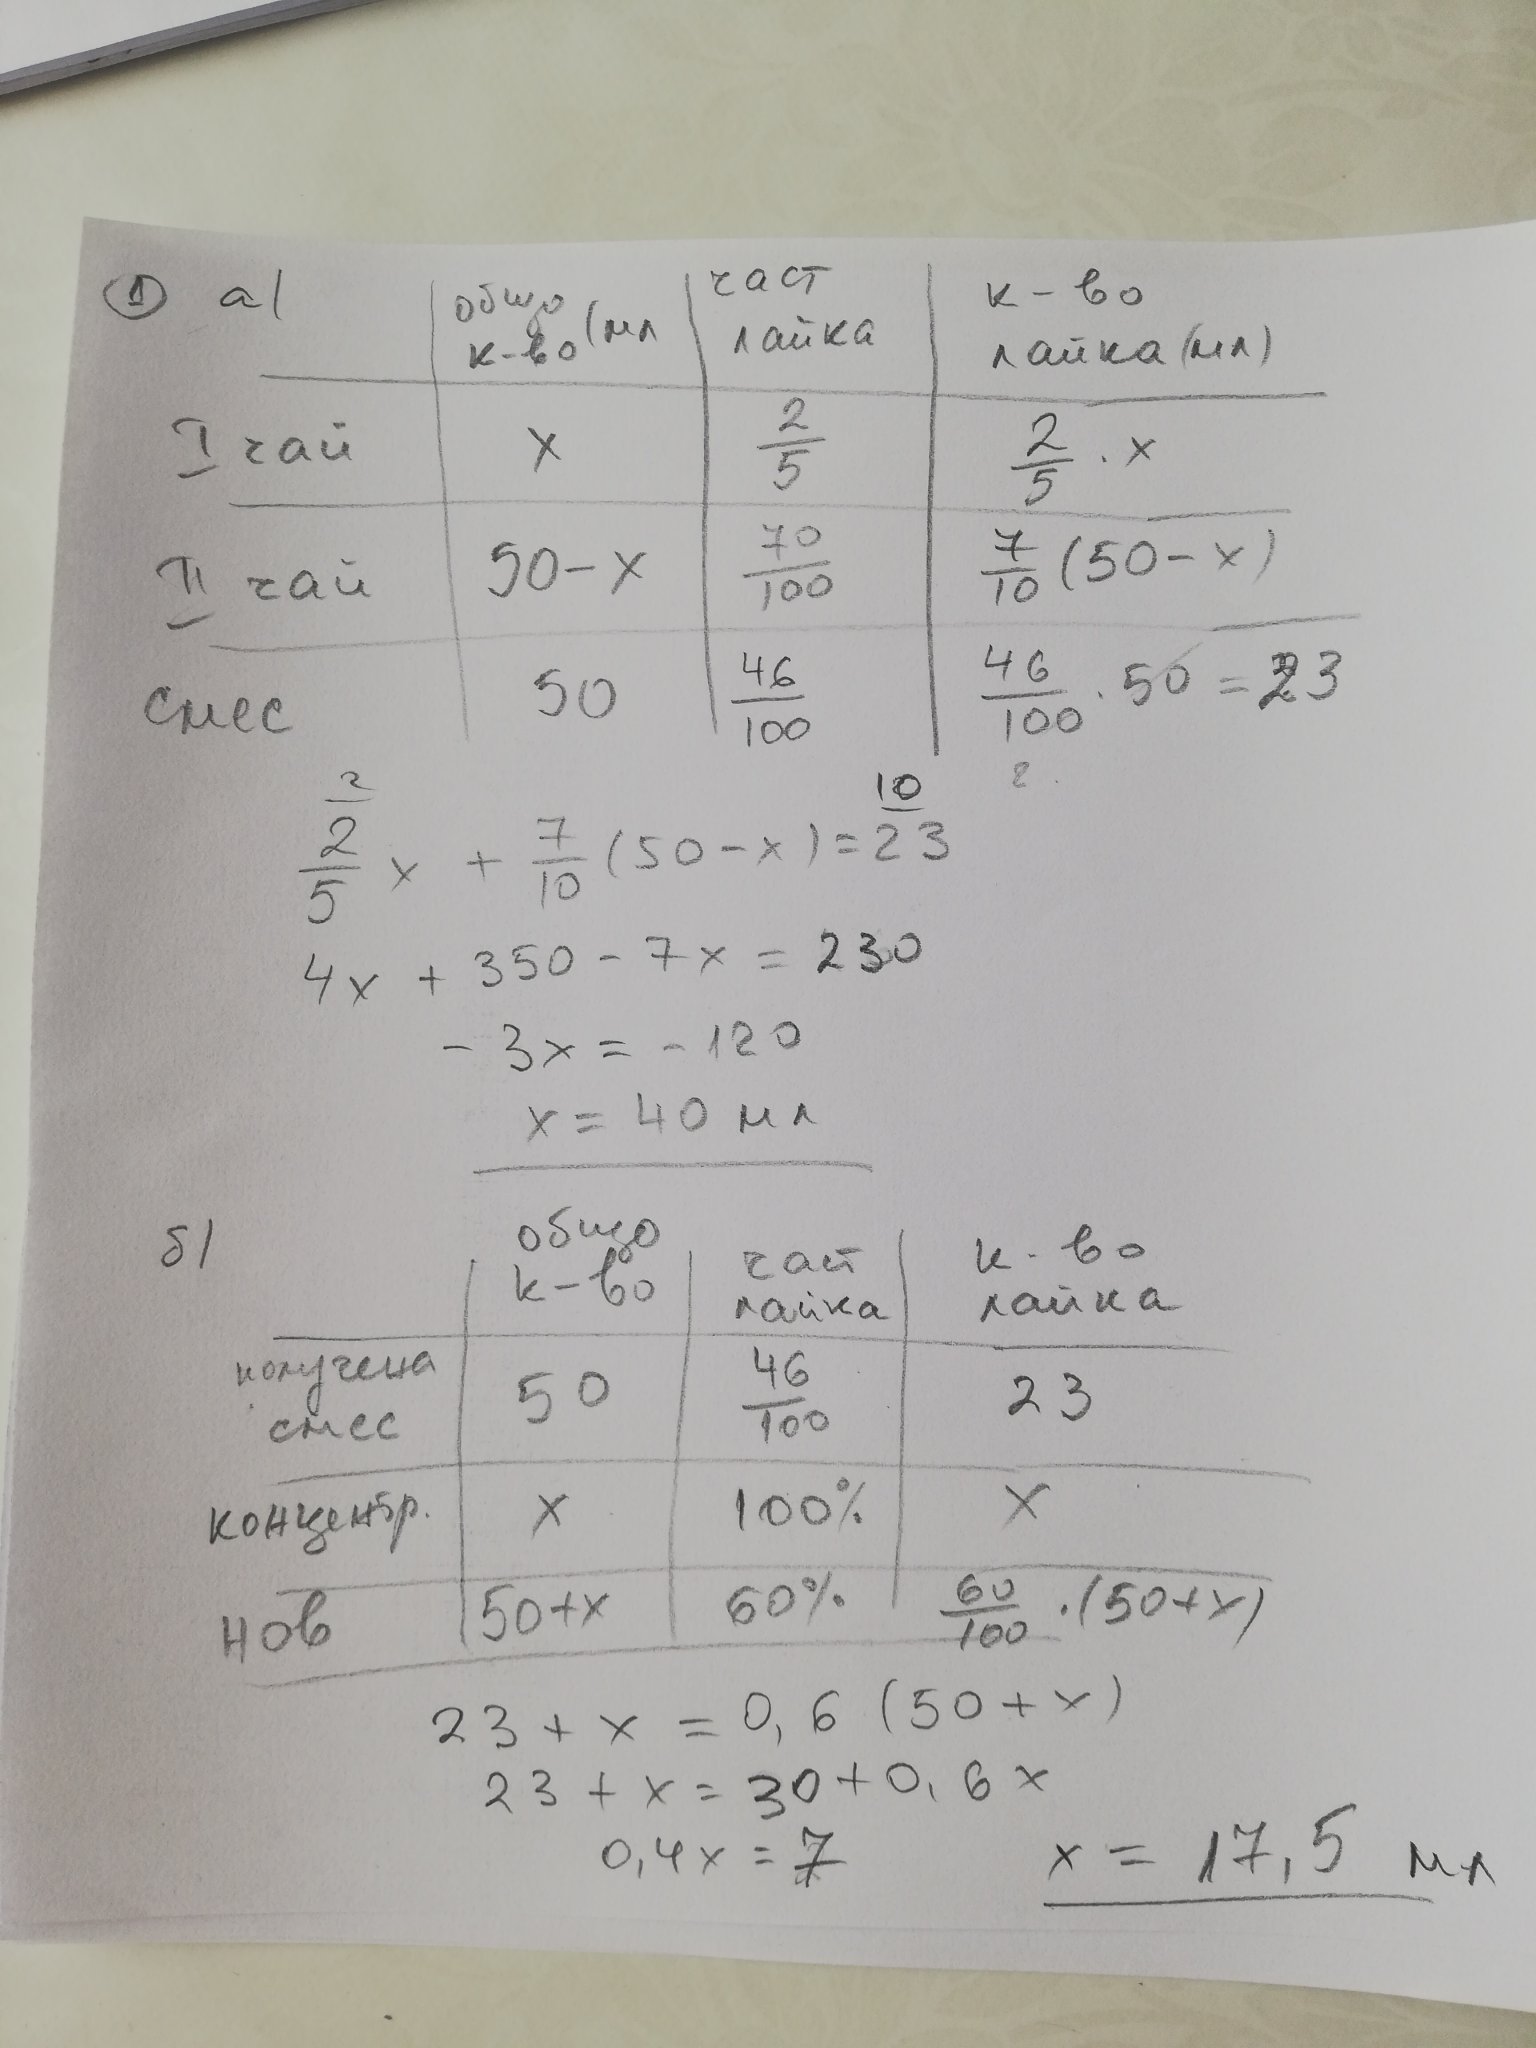 ① а/ общо к-во (мл част лайка к-во лайка (мл)
I чай x 2/5 2/5 · x
II чай 50-x 70/100 7/10 (50-x)
смес 50 46/100 46/100 · 50 = 23
2/5 x + 7/10 (50-x) = 23
4x + 350 - 7x = 230
-3x = -120
x = 40 мл
б/ общо к-во част лайка к-во лайка
получена смес 50 46/100 23
концентр. x 100% x
нов 50+x 60% 60/100 · (50+x)
23 + x = 0,6 (50+x)
23 + x = 30 + 0,6x
0,4x = 7 x = 17,5 мл